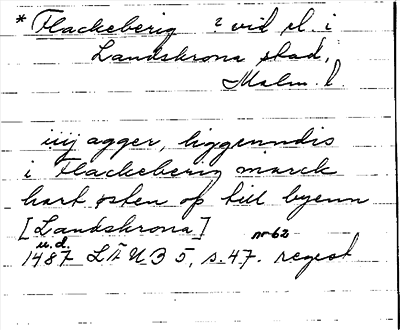 * Flackeberig ? vid el. i
Landskrona stad,
Malm. l.
iiij agger, liggenndis
i Flackeberig marck
hart østen op till byenn
[Landskrona]
u.d. nr 62
1487 LÄUB 5, s. 47. regest